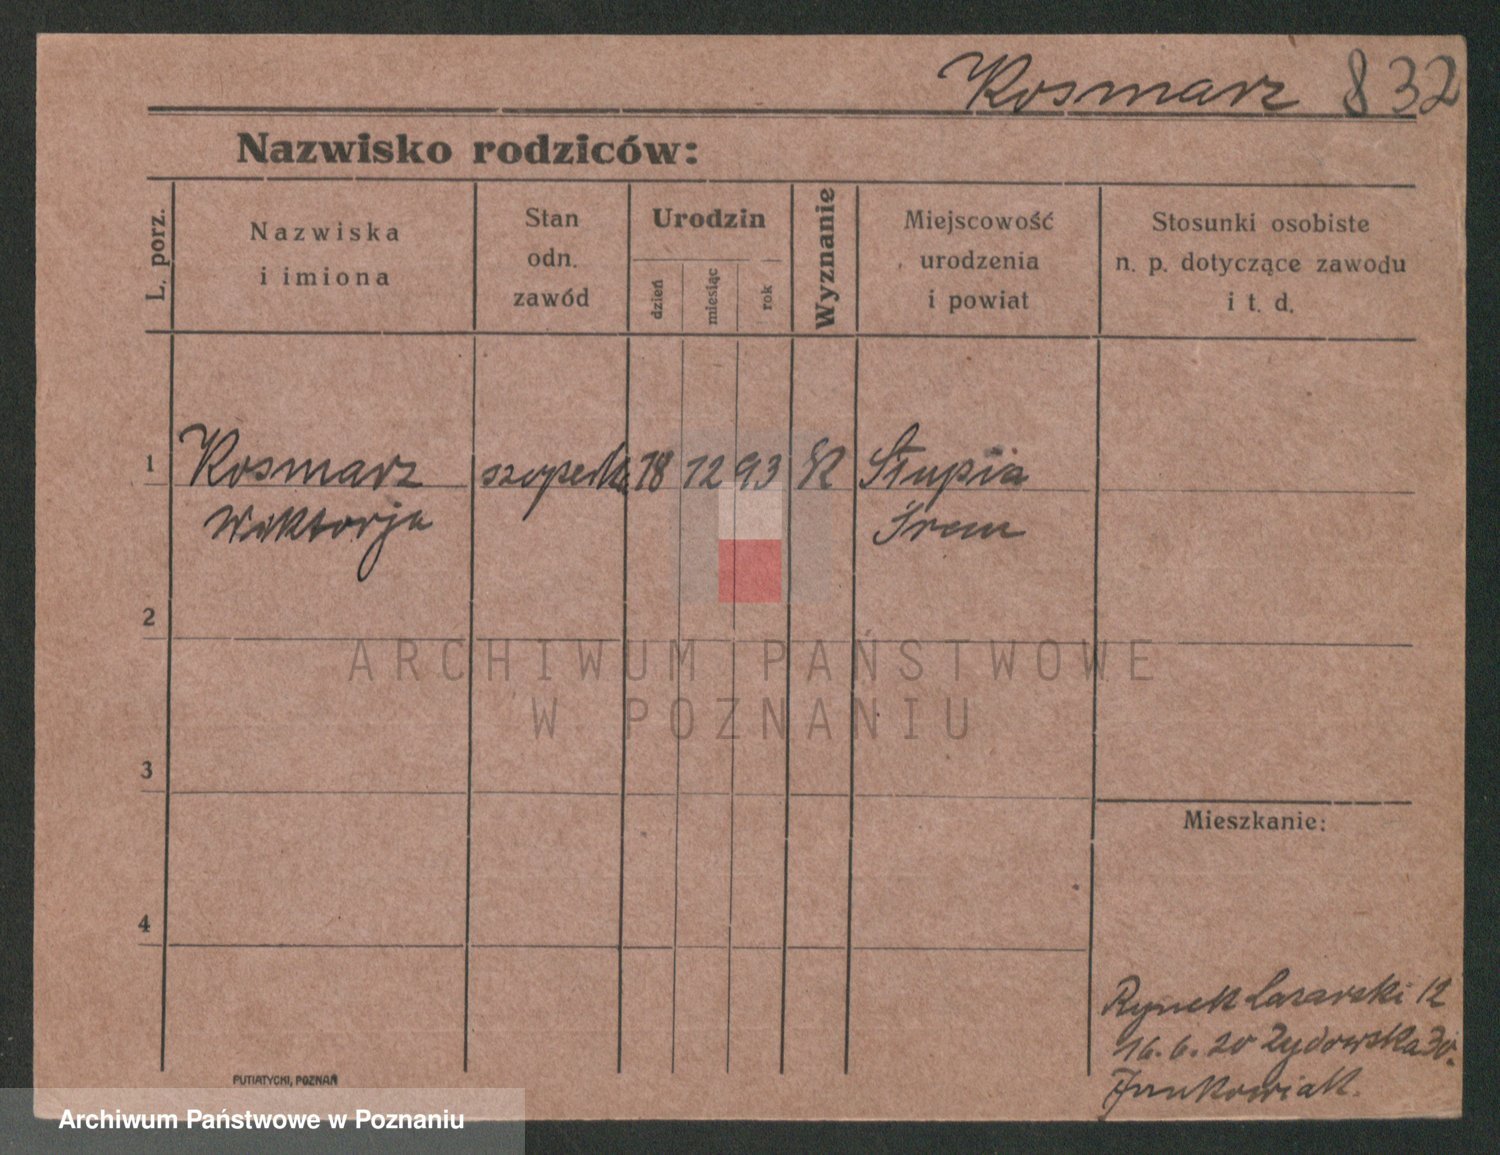 Kosmarz 832
Nazwisko rodziców:
L. porz.
Nazwiska
i imiona
Stan
odn.
zawód
Urodzin
dzień
miesiąc
rok
Wyznanie
Miejscowość
urodzenia
i powiat
Stosunki osobiste
n. p. dotyczące zawodu
i t. d.
1
Kosmarz 18 12 93 Słupia
Wiktorja Śrem
2
ARCHIWUM PAŃSTWOWE
W POZNANIU
3
Mieszkanie:
4
Rynek Lazarski 12
16. 6. 20 Żydowska 30.
Jankowiak.
PUTIATYCKI, POZNAŃ
Archiwum Państwowe w Poznaniu